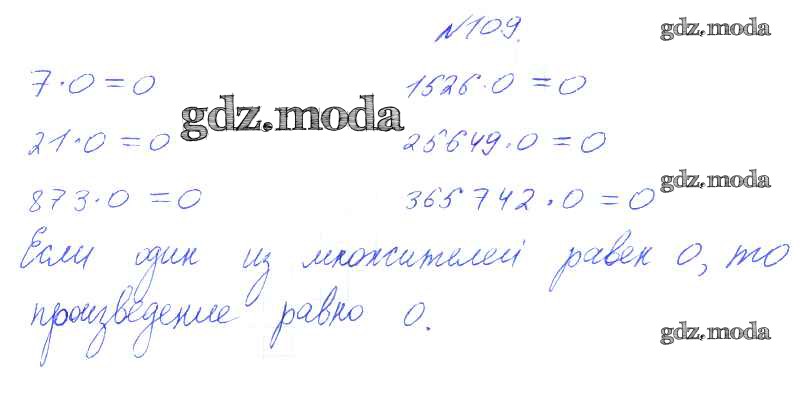 №109.
gdz.moda
7·0=0
1526·0=0
gdz.moda
21·0=0
25649·0=0
873·0=0
365742·0=0
gdz.moda
Если один из множителей равен 0, то
произведение равно 0.
gdz.moda